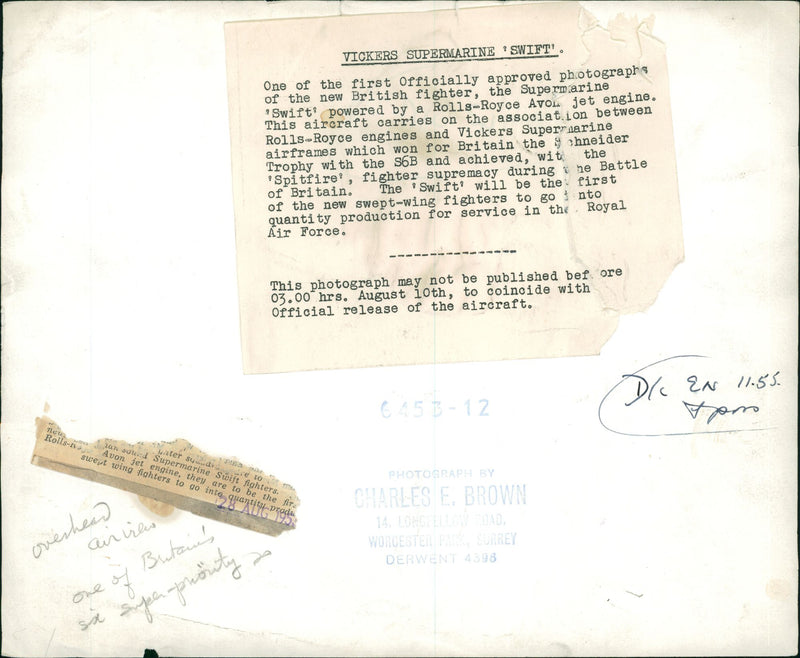 VICKERS SUPERMARINE 'SWIFT'.
One of the first Officially approved photographs
of the new British fighter, the Supermarine
'Swift' powered by a Rolls-Royce Avon jet engine.
This aircraft carries on the association between
Rolls-Royce engines and Vickers Supermarine
airframes which won for Britain the Schneider
Trophy with the S6B and achieved, with the
'Spitfire', fighter supremacy during the Battle
of Britain. The 'Swift' will be the first
of the new swept-wing fighters to go into
quantity production for service in the Royal
Air Force.
----------------
This photograph may not be published before
03.00 hrs. August 10th, to coincide with
Official release of the aircraft.
D/c EN 11.55.
6453-12
PHOTOGRAPH BY
CHARLES E. BROWN
14, LONGFELLOW ROAD,
WORCESTER PARK, SURREY
DERWENT 4398
Supermarine Swift fighters.
Avon jet engine, they are to be the fir
swept wing fighters to go into quantity produ
28 AUG 195
overhead
air view
one of Britain's
six super-priority